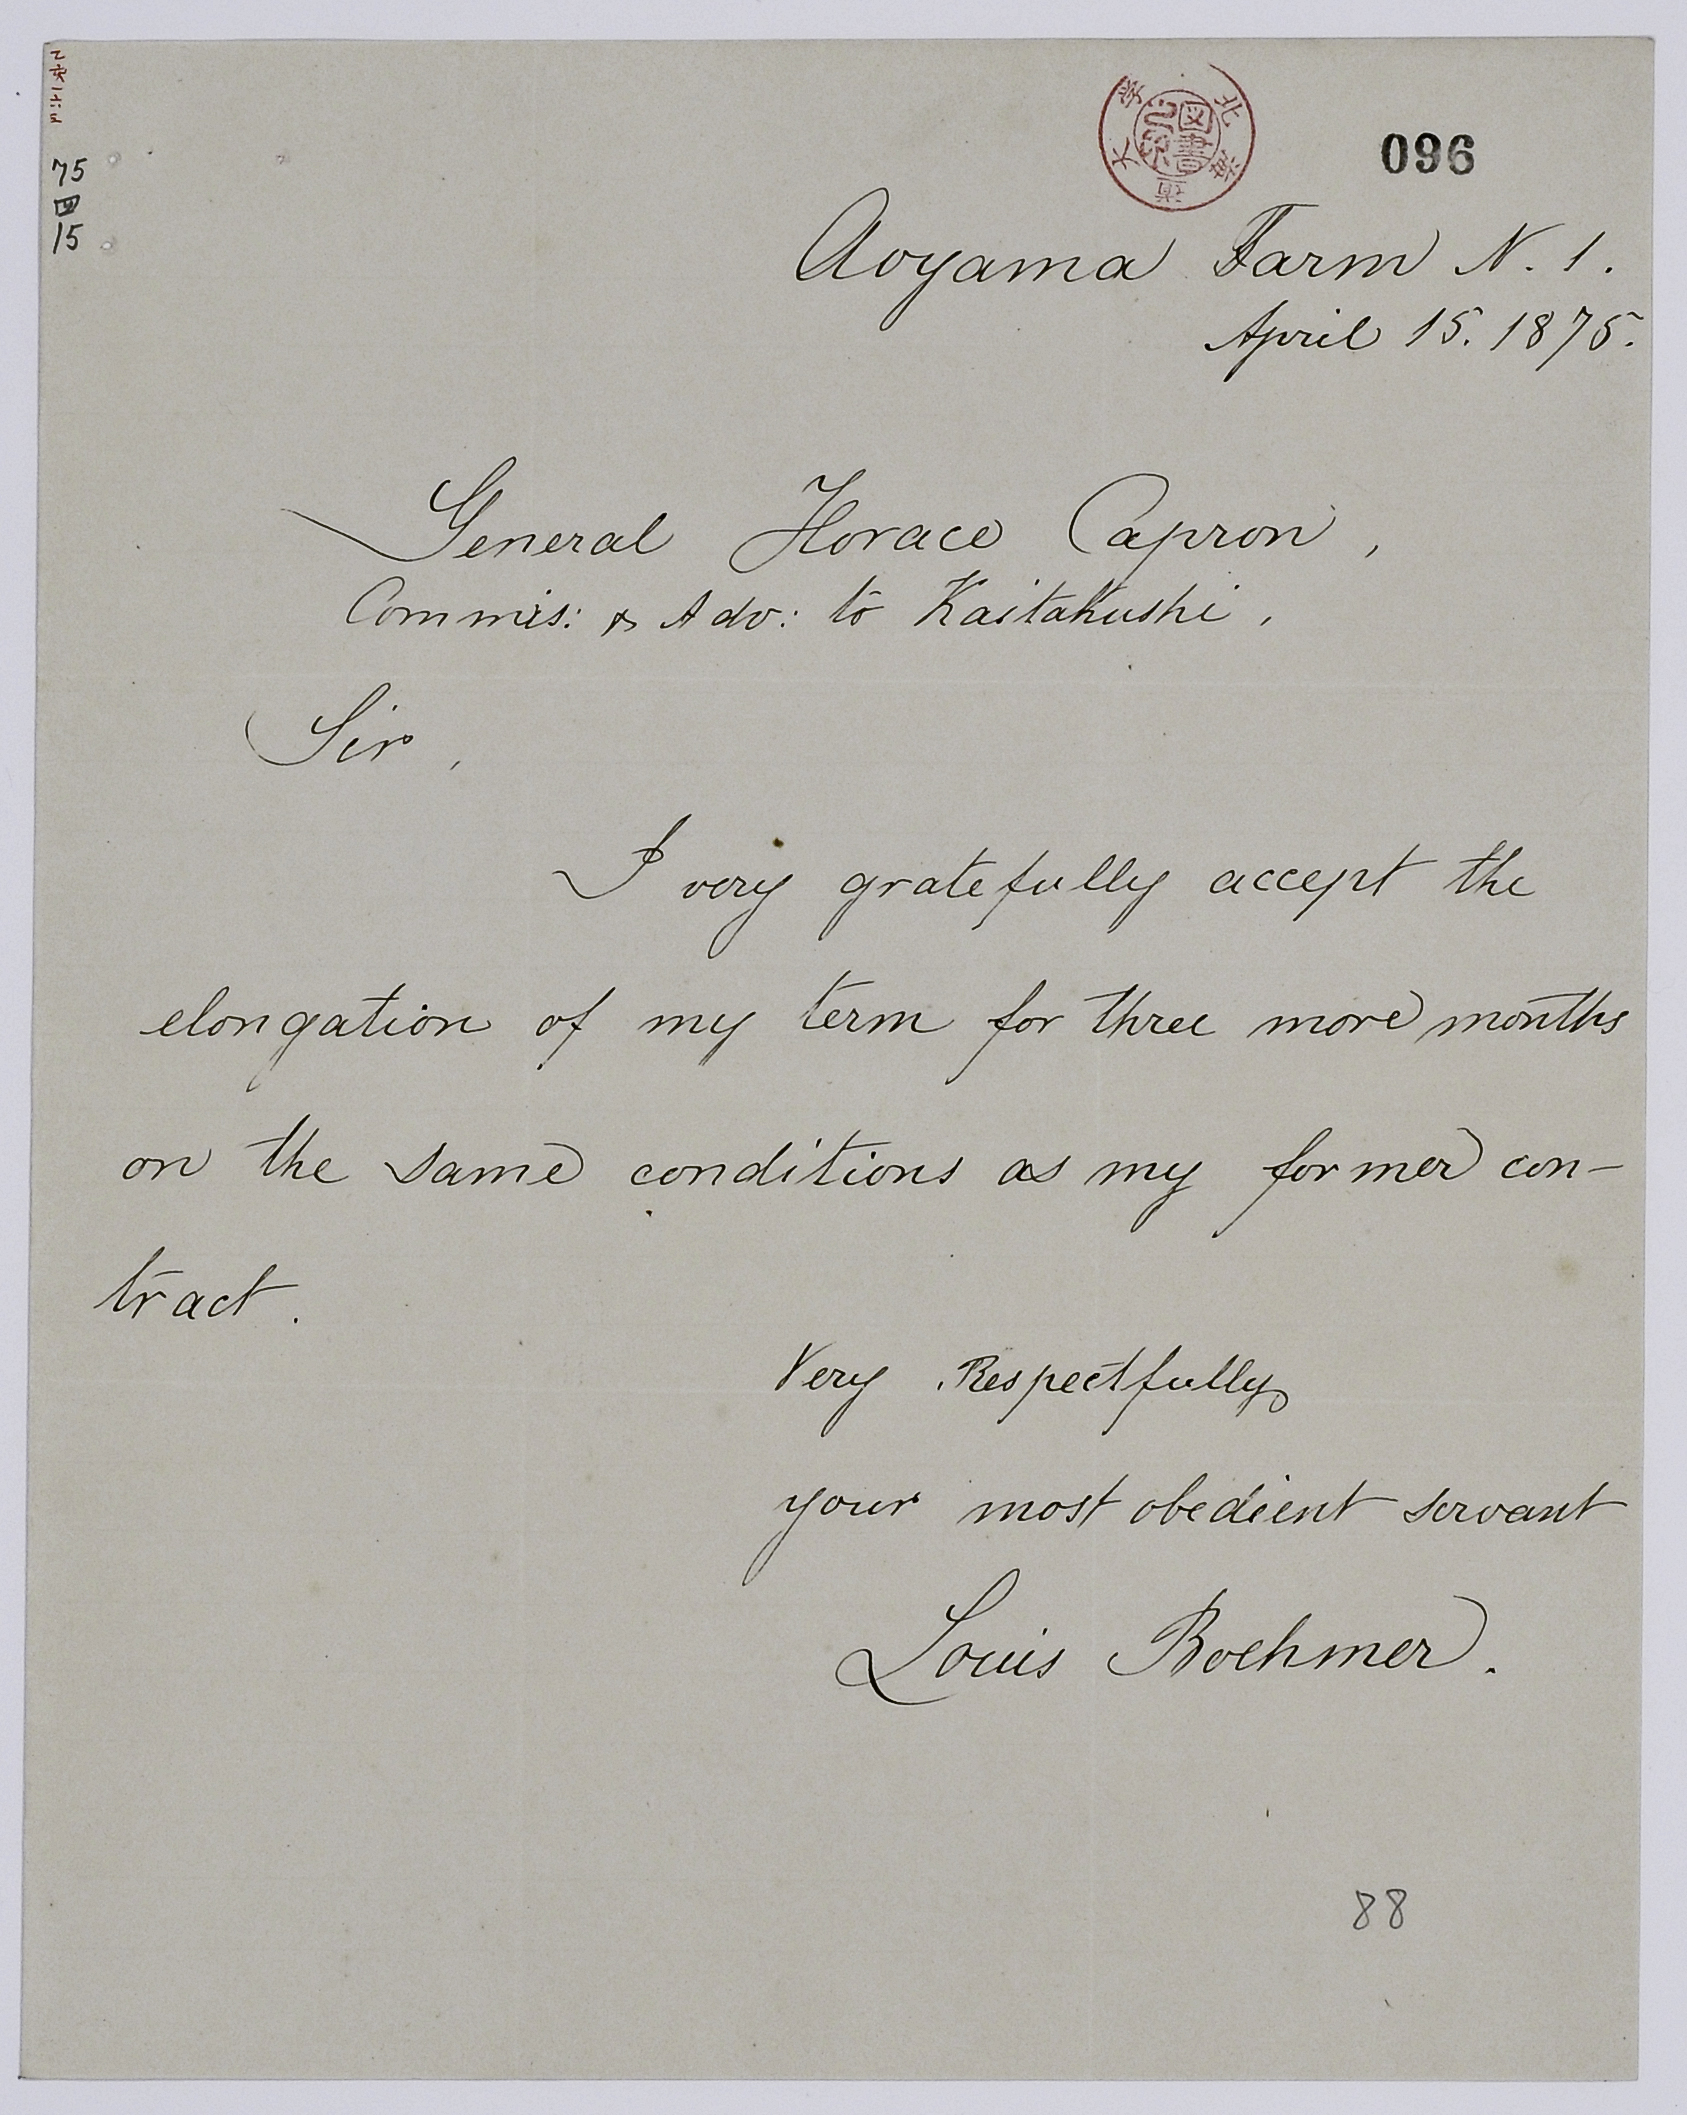 096
75
四
15
Aoyama Farm N. 1.
April 15. 1875.
General Horace Capron,
Commis: & Adv: to Kaitakushi,
Sir,
I very gratefully accept the
elongation of my term for three more months
on the same conditions as my former con-
tract.
Very Respectfully
your most obedient servant
Louis Boehmer.
88